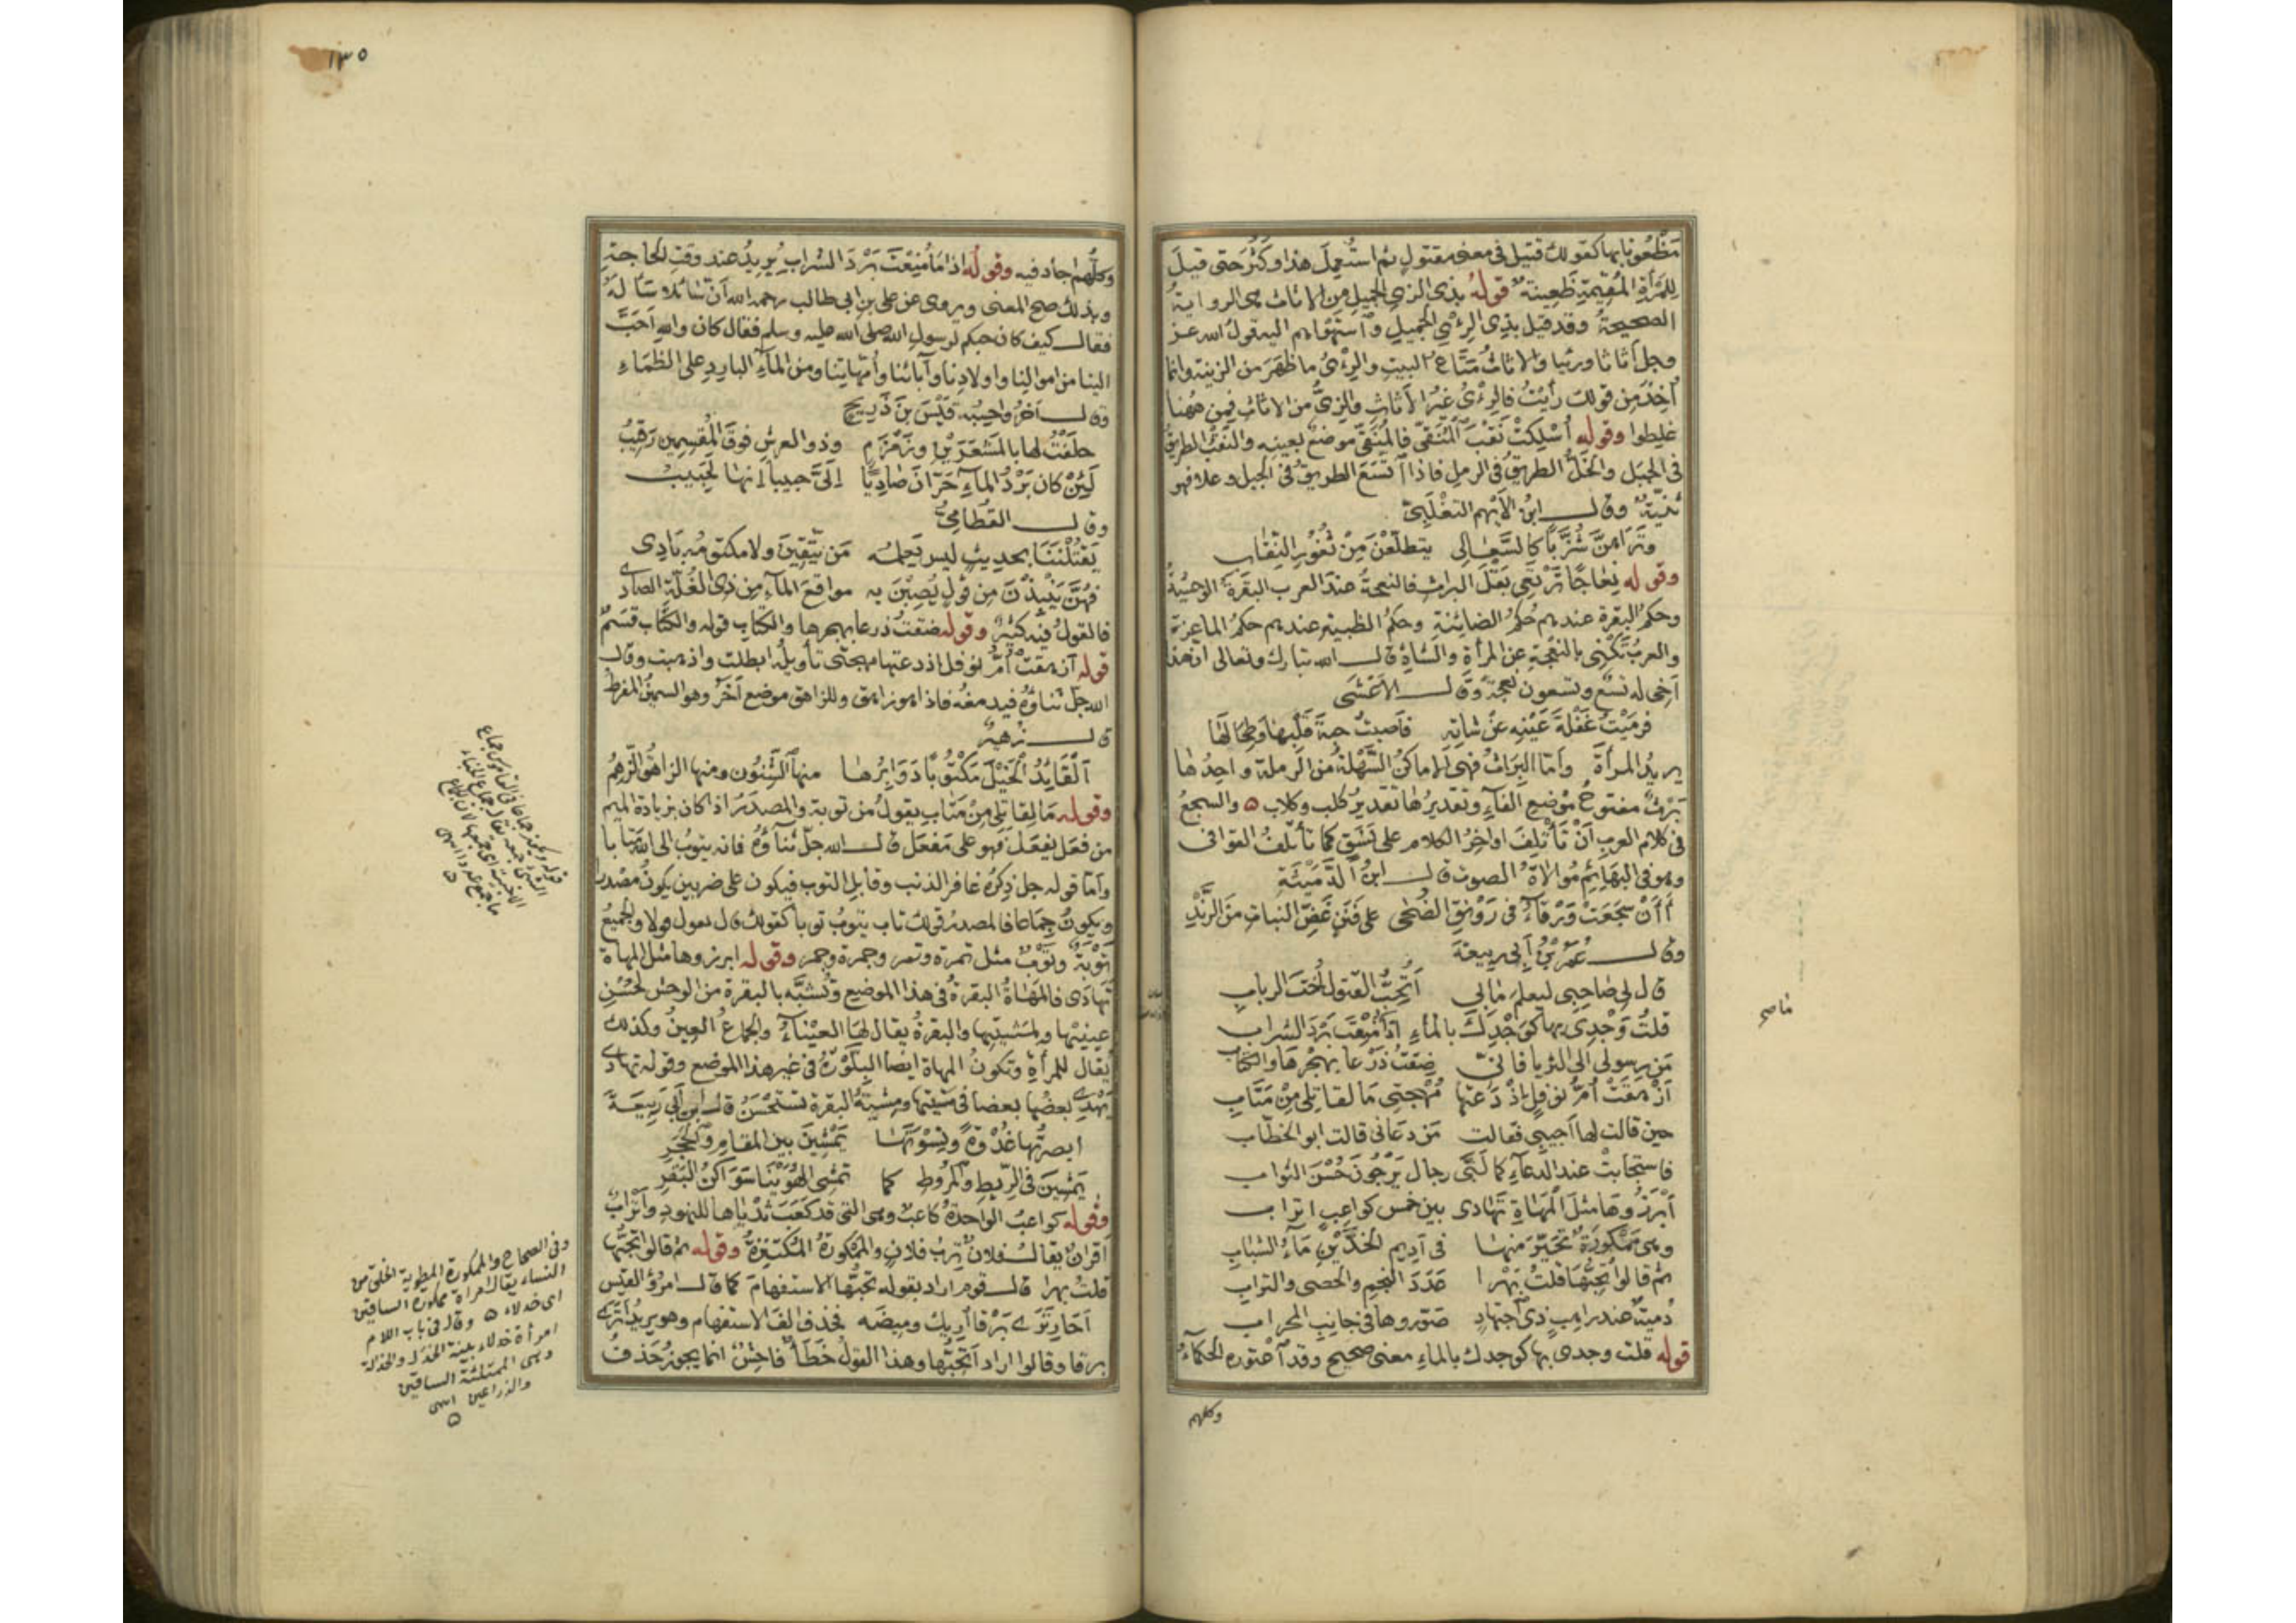 مَظْعُونا بها كقولك قتيل في معنى مقتول ثم استُعمِلَ هذا وكَثُرَ حتى قيلَ
للمرأةِ المُقيمةِ ظَعِينة قولهُ بذي الزيِ الجميلِ من الاثاث هي الرواية
الصحيحةُ وقد قيل بذي الرِئْيِ الجميلِ واستهواهم اليه قولُ الله عز
وجل أثاثا ورئيا والاثاثُ مَتَاعُ البيتِ والرِئْيُ ما ظَهَرَ من الزينةِ وانما
أُخِذَ مِن قولك رأيتُ فالرِئْيُ غيرُ الأثاثِ والزِيُّ من الاثاثِ فمِن ههنا
غلطوا وقوله أسْلكتْ نَقْبَ المُنَقَّى فالمُنَقَّى موضعٌ بعينِه والنَقْبُ الطريقُ
في الجبَل والخَلُّ الطريقُ في الرملِ فاذا اتَّسَعَ الطريقُ في الجبلِ وعلا فهو
ثَنِيَّةٌ وقال ابنُ الأَيْهمِ التغْلَبِيّ
وتَرَاهنَّ شُزَّباً كالسَّعَالِي يتطلّعْنَ مِنْ ثُغُورِ النِّقَابِ
وقوله نِعَاجًا تَرْتَعِي بَقْلَ البراثِ فالنعجةُ عندَ العرب البقَرةُ الوحشيّةُ
وحكمُ البقرةِ عندهم حُكمُ الضائنةِ وحكمُ الظبيةِ عندهم حكمُ الماعزة
والعربُ تَكْنِي بالنَعْجَةِ عن المرأةِ والشاةِ قال الله تبارك وتعالى ان هذا
أَخِي له تسع وتسعون نعجةً وقال الأَعْشَى
فرمَيْتُ غَفْلةَ عَيْنِه عنْ شاتِه فأصبتُ حبةَ قَلْبِها وطِحَالَها
يريدُ المرأةَ وامّا البِرَاثُ فهي الاماكنُ السَّهْلةُ من الرملة واحدُها
بَرْثٌ مفتوحُ موضعِ الفاءِ وتقديرُها تقديرُ كلب وكلاب ٥ والسجعُ
في كلام العربِ أنْ تَأْتَلِفَ اواخِرُ الكلامِ على نَسَقٍ كما تأتلفُ القوافي
وهو في البهائِم مُوالاةُ الصوت قال ابنُ الدُّمَيْنَةِ
أأنْ سَجَعَتْ وَرْقاءُ في رَوْنقِ الضُحى على فَنَنٍ غَضِّ النباتِ منَ الرَّنْدِ
وقال عُمَرُ بْنُ أبي ربيعةَ
قال لي صَاحِبي ليعلمَ مَابي أتُحِبُّ القتولَ أختَ الرباب
قلتُ وَجْدِي بها كوَجْدِكَ بالماءِ إذا مُنِعْتَ بَرْدَ الشراب
مَن رسولي الى الثريا فاني ضِقْتُ ذَرْعا بهجْرِهَا والكتاب
أزْهَقَتْ أمُّ نوفلٍ إذْ دَعَتْها مُهْجتي مَا لقاتِلي مِنْ مَتَابِ
حين قالت لها أجيبي فقالت مَن دعَاني قالت ابو الخطّابِ
فاستجابتْ عند الدعاءِ كما لَبّى رجال يَرْجُونَ حُسْنَ الثواب
أبْرَزُوها مثلَ المَهَاةِ تَهَادى بين خمس كواعبٍ اتراب
وهي مَمْكورَةٌ تحَيّرَ منها في أديمِ الخدَّيْنِ مَاءُ الشبَابِ
ثم قالوا تُحِبُّها قلتُ بَهْرا عَدَدَ النجمِ والحصى والتراب
دُمْيةٌ عند راهبٍ ذي اجتهادٍ صَوّروها في جانبِ المحرابِ
قوله قلت وجدي بها كوجدك بالماءِ معنى صحيح وقد اعتوره الحكماءُ
وكلهم
١٣٥
وكلُّهم اجاد فيه وقولُه اذا ما مُنِعْتَ بَرْدَ الشراب يُريدُ عند وقتِ الحاجةِ
وبذلك صحّ المعنى ويروى عن علي بن ابي طالب رحمه الله أنّ سائلا سَألهُ
فقال كيف كان حبكم لرسولِ الله صلى الله عليه وسلم فقال كان والله أحَبَّ
الينا من اموالنا واولادِنا وآبائنا وأمّهاتِنا ومن الماءِ الباردِ على الظمَاءِ
وقال آخرُ واحسِبُه قَيْسَ بنَ ذَرِيح
حلَفْتُ لها بالمَشْعَرَيْنِ وزَمْزمٍ وذو العرشِ فوقَ المُقسِمين رقيبُ
لَئِنْ كان بَرْدُ الماءِ حَرّانَ صَادِيًا إلَيَّ حبيبا إنها لَحَبيبُ
وقال القُطَامِيُّ
يَقْتُلْنَنَا بحديثٍ ليس يَعلمُه مَن يَتّقِينَ ولا مكتومُه بَادِي
فهُنَّ يَنْبِذْنَ مِن قَوْلٍ يُصِبْنَ به مواقعَ الماءِ مِن ذي الغُلَّةِ الصادي
فالقولُ فيه كثيرٌ وقوله ضقتُ ذرعا بهجرها والكتابِ قوله والكتاب قَسَمٌ
قوله أزهقتْ أمُّ نوفل إذ دعتها مهجتي تأويلُه ابطلت واذهبت وقال
الله جلّ ثناؤه فيدمغُه فاذا هو زاهق وللزاهق موضع آخَرُ وهو السمينُ المفرط
قال زهيرٌ
ألقَائِدُ الخَيْلَ مَنْكُوبًا دَوَابِرُها منها الشَّنُونُ ومنها الزاهقُ الزَّهِمُ
وقوله مَا لِقاتِلي مِنْ مَتَاب يقولُ من توبةٍ والمصدَرُ اذا كان بزيادةِ الميم
من فعَلَ يفعَلُ فهو على مَفعَل قال الله جلّ ثناؤُه فانه يتوبُ الى الله مَتابا
وأمّا قوله جل ذِكرُه غافرِ الذنب وقابلِ التوب فيكون على ضربين يكونُ مصدرا
ويكونُ جِمَاعا فالمصدرُ قولك تاب يتوبُ توبا كقولك قال يقول قولا والجميعُ
تَوْبَةٌ وتَوْبٌ مثل تمرة وتمر وجمرة وجمر وقوله ابرزوها مثل المهاة
تَهَادَى فالمَهاةُ البقرةُ في هذا الموضع وتُشبَّه بالبقرة من الوحش لحُسْنِ
عينَيْها ولمِشْيتِها والبقرةُ يقال لها العَيْناءُ والجِماعُ العِينُ وكذلك
يُقال للمرأةِ وتكونُ المهاة ايضا البِلَّوْرَةُ في غيرِ هذا الموضع وقوله تهادى
يَهْدِي بعضُها بعضا في مشيتها ومِشْيةُ البقرة تستَحْسَنُ قال ابن أبي ربيعَةَ
ابصرتُها غُدْوةً ونِسْوَتَها يَمْشِينَ بين المقامِ والحَجَرِ
يَمْشِينَ في الرَيْطِ والمُرُوطِ كما تمْشِي الهُوَيْنَا سَوَاكنُ البَقَرِ
وقوله كواعبُ الواحدةُ كاعبٌ وهي التي قد كَعَبَ ثدْياها للنهودِ وأترابٌ
أقرانٌ يقال فلانٌ تِرْبُ فلانٍ والمَمْكورةُ المُكْتَنِزةُ وقوله ثم قالوا تحِبُّها
قلتُ بهرا قال قوم اراد بقوله تحبُّها الاستفهامَ كما قال امرؤ القيس
أحَارِ تَرَى بَرْقا أُرِيك وميضَه فحذف ألفَ الاستفهام وهو يريدُ أتَرَى
برقا وقالوا اراد أتحِبُّها وهذا القولُ خَطَأٌ فاحِشٌ انما يجوزُ حَذفُ
وفي الصحاح والممكورة المطوية الخلق من
النساء يقال امرأة ممكورة الساقين
اى خدلاء ٥ وقال في باب اللام
امرأة خدلاء بينة الخدل والخدلة
وهي الممتلئة الساقين
والذراعين انتهى